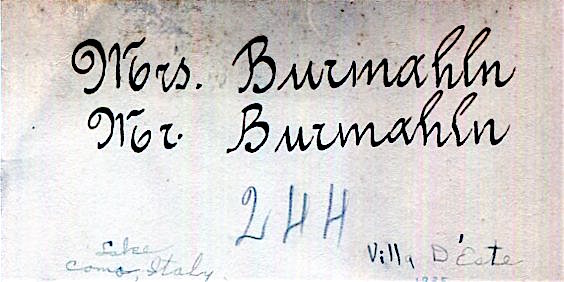 Mrs. Burmahln
Mr. Burmahln
244
Lake
Como, Italy
Villa D'Este
1925